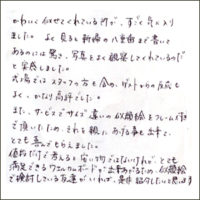 かわいく似せてくれている所が、すごく気に入り
ました。よく見ると新婦の八重歯まで書いて
あるのには驚き、写真をよく観察してくれているのだ
と実感しました。
式場ではスタッフの方も含め、ゲストからの反応も
よく、かなり高評でした。
また、サービスでサイズ違いの似顔絵をフレーム付き
で頂いたため、それを親にあげる事も出来て、
とても喜んでもらえました。
値段だけで考えると安い物ではないけれど、とても
満足できるウェルカムボードが出来あがるため、似顔絵
で検討している友達がいれば、是非紹介したいと思います